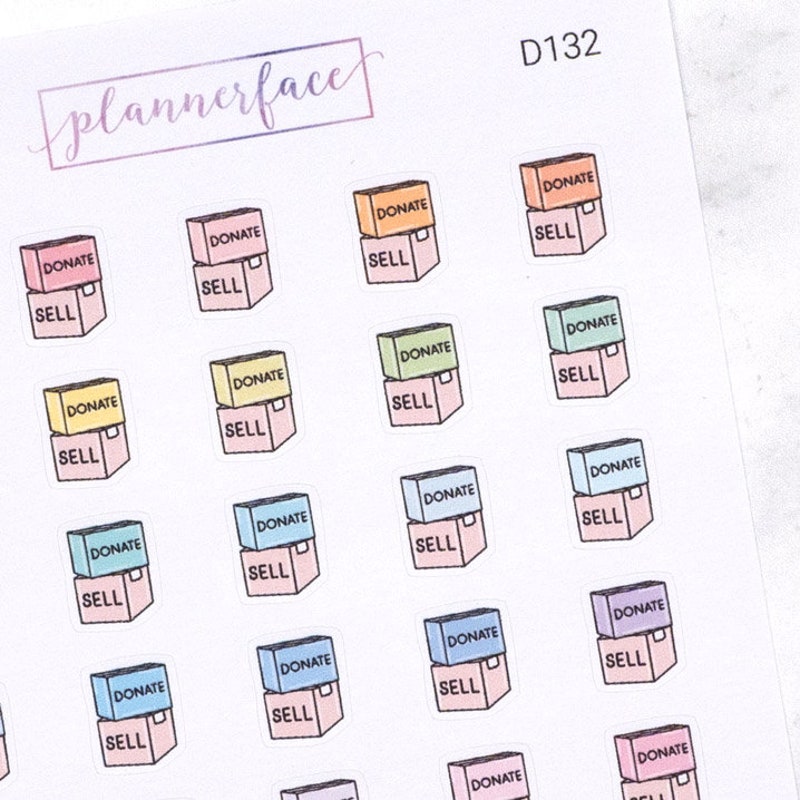 plannerface
D132
DONATE
SELL
DONATE
SELL
DONATE
SELL
DONATE
SELL
DONATE
SELL
DONATE
SELL
DONATE
SELL
DONATE
SELL
DONATE
SELL
DONATE
SELL
DONATE
SELL
DONATE
SELL
DONATE
SELL
DONATE
SELL
DONATE
SELL
DONATE
SELL
DONATE
DONATE
DONATE
SELL